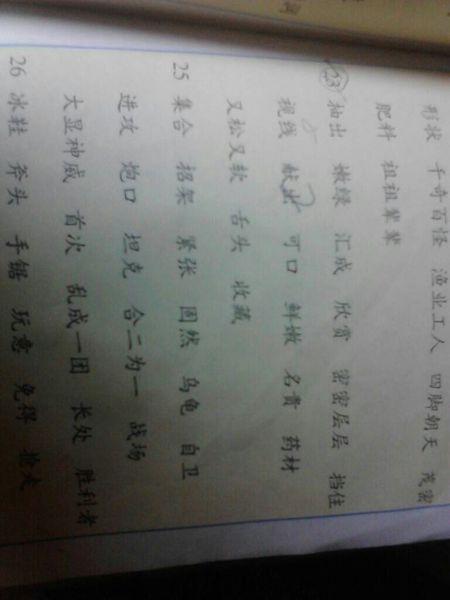 形状 千奇百怪 渔业工人 四脚朝天 茂密
肥料 祖祖辈辈
23 抽出 嫩绿 汇成 欣赏 密密层层 挡住
视线 献出 可口 鲜嫩 名贵 药材
又松又软 舌头 收藏
25 集合 招架 紧张 固然 乌龟 自卫
进攻 炮口 坦克 合二为一 战场
大显神威 首次 乱成一团 长处 胜利者
26 冰鞋 斧头 手锯 玩意 免得